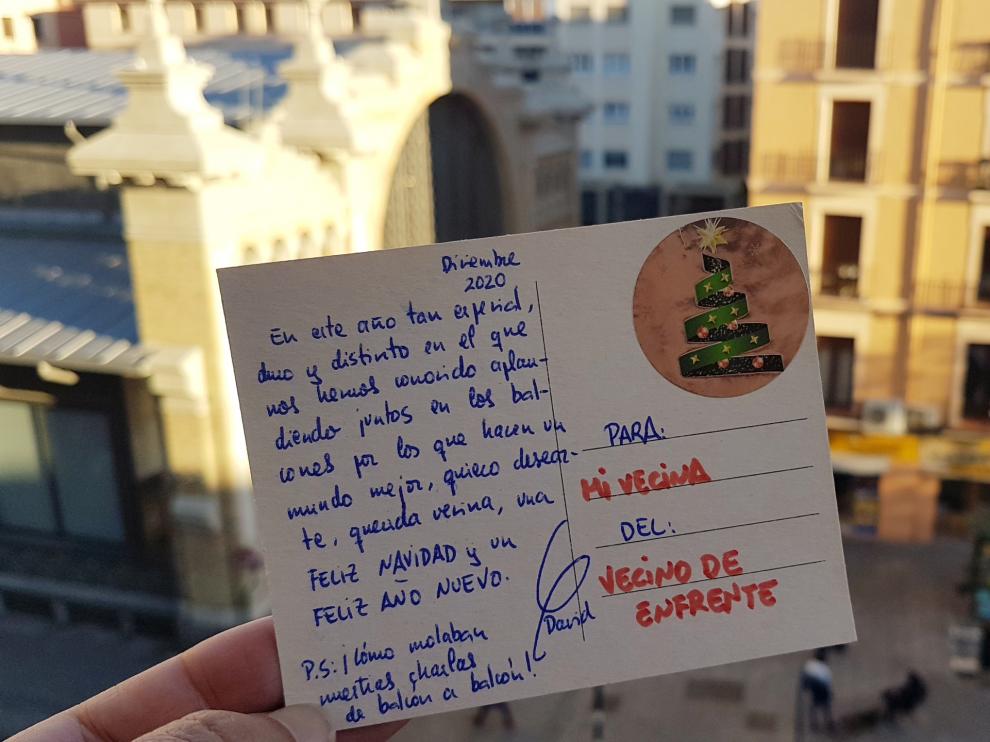 Diciembre
2020
En este año tan especial,
duro y distinto en el que
nos hemos conocido aplau-
diendo juntos en los bal-
cones por los que hacen un
mundo mejor, quiero desear-
te, querida vecina, una
FELIZ NAVIDAD y un
FELIZ AÑO NUEVO.
David
P.S: ¡Cómo molaban
nuestras charlas
de balcón a balcón!
PARA:
MI VECINA
DEL:
VECINO DE
ENFRENTE